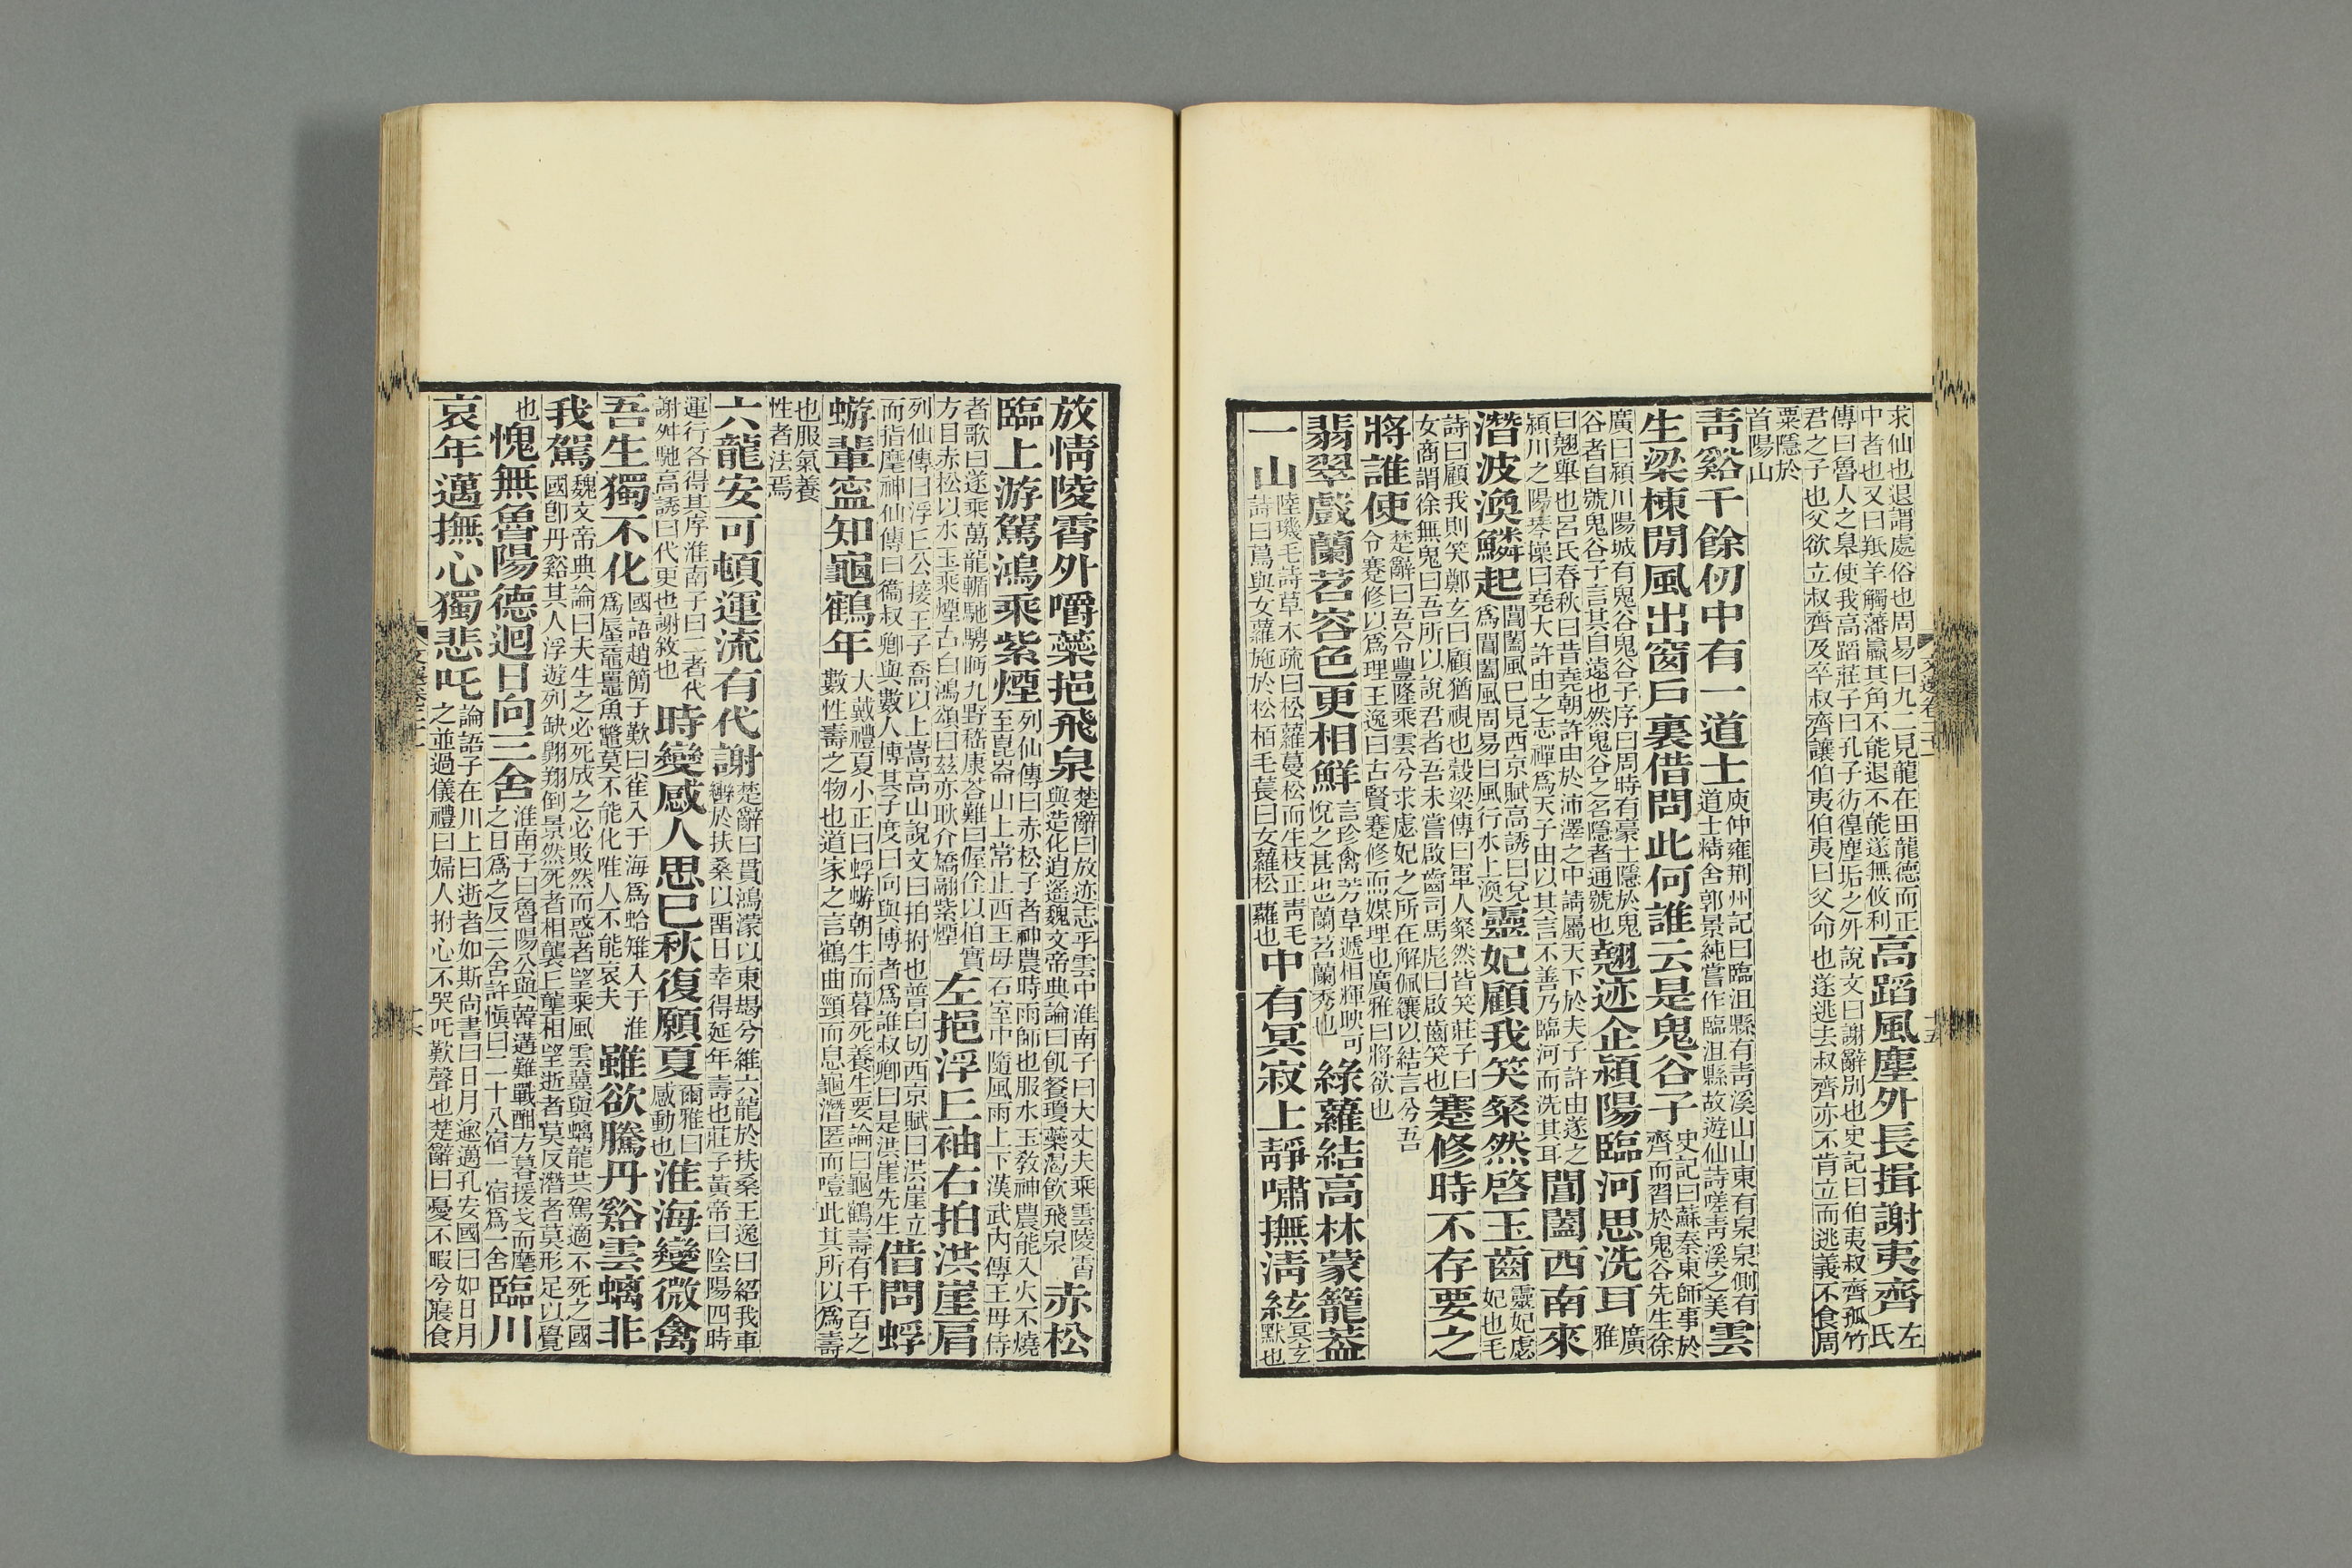 求仙也退謂處俗也周易曰九二見龍在田龍德而正中者也又曰羝羊觸藩羸其角不能退不能遂無攸利高蹈風塵外長揖謝夷齊左氏
傳曰魯人之臯使我高蹈莊子曰孔子彷徨塵垢之外說文曰謝辭別也史記曰伯夷叔齊孤竹君之子也父欲立叔齊及卒叔齊讓伯夷伯夷曰父命也遂逃去叔齊亦不肯立而逃義不食周
粟隱於首陽山
青谿千餘仞中有一道士庾仲雍荆州記曰臨沮縣有青溪山山東有泉泉側有道士精舍郭景純嘗作臨沮縣故遊仙詩嗟青溪之美雲
生梁棟閒風出窗戶裏借問此何誰云是鬼谷子史記曰蘇秦東師事於齊而習於鬼谷先生徐
廣曰潁川陽城有鬼谷鬼谷子序曰周時有豪士隱於鬼谷者自號鬼谷子言其自遠也然鬼谷之名隱者通號也翹迹企潁陽臨河思洗耳廣雅
曰翹舉也呂氏春秋曰昔堯朝許由於沛澤之中請屬天下於夫子許由遂之潁川之陽琴操曰堯大許由之志禪爲天子由以其言不善乃臨河而洗其耳閶闔西南來
潛波渙鱗起閶闔風已見西京賦高誘曰兌爲閶闔風周易曰風行水上渙靈妃顧我笑粲然啓玉齒靈妃虙妃也毛
詩曰顧我則笑鄭玄曰顧猶視也穀梁傳曰軍人粲然皆笑莊子曰女商謂徐無鬼曰吾所以說君者吾未嘗啟齒司馬彪曰啟齒笑也蹇修時不存要之
將誰使楚辭曰吾令豐隆乘雲兮求虙妃之所在解佩纕以結言兮吾令蹇修以爲理王逸曰古賢蹇修而媒理也廣雅曰將欲也
翡翠戲蘭苕容色更相鮮言珍禽芳草遞相輝映可悅之甚也蘭苕蘭秀也綠蘿結高林蒙籠蓋
一山陸璣毛詩草木疏曰松蘿蔓松而生枝正青毛詩曰蔦與女蘿施於松栢毛萇曰女蘿松蘿也中有冥寂士靜嘯撫清絃冥玄默也
放情陵霄外嚼蘂挹飛泉楚辭曰放迹志乎雲中淮南子曰大丈夫乘雲陵霄與造化逍遙魏文帝典論曰飢餐瓊蘂渴飲飛泉赤松
臨上游駕鴻乘紫煙列仙傳曰赤松子者神農時雨師也服水玉敎神農能入火不燒至崑崙山上常止西王母石室中隨風雨上下漢武内傳王母侍
者歌曰遂乘萬龍輴馳騁眄九野嵇康荅難曰偓佺以伯實方目赤松以水玉乘煙古白鴻頌曰茲亦耿介矯翮紫煙左挹浮丘袖右拍洪崖肩
列仙傳曰浮丘公接王子喬以上嵩高山說文曰拍拊也普白切西京賦曰洪崖立而指麾神仙傳曰衞叔卿與數人博其子度曰向與博者爲誰叔卿曰是洪崖先生借問蜉
蝣輩寍知龜鶴年大戴禮夏小正曰蜉蝣朝生而暮死養生要論曰龜鶴壽有千百之數性壽之物也道家之言鶴曲頸而息龜潛匿而噎此其所以爲壽
也服氣養性者法焉
六龍安可頓運流有代謝楚辭曰貫鴻濛以東朅兮維六龍於扶桑王逸曰紹我車轡於扶桑以畱日幸得延年壽也莊子黃帝曰陰陽四時
運行各得其序淮南子曰二者代謝舛馳高誘曰代更也謝敘也時變感人思已秋復願夏爾雅曰感動也淮海變微禽
吾生獨不化國語趙簡子歎曰雀入于海爲蛤雉入于淮爲蜃黿鼉魚鼈莫不能化唯人不能哀夫雖欲騰丹谿雲螭非
我駕魏文帝典論曰夫生之必死成之必敗然而惑者望乘風雲冀與螭龍共駕適不死之國國卽丹谿其人浮遊列缺翺翔倒景然死者相襲丘壟相望逝者莫反潛者莫形足以覺
也愧無魯陽德迴日向三舍淮南子曰魯陽公與韓遘難戰酣方暮援戈而麾之日爲之反三舍許愼曰二十八宿一宿爲一舍臨川
哀年邁撫心獨悲吒論語子在川上曰逝者如斯尚書曰日月逾邁孔安國曰如日月之並過儀禮曰婦人拊心不哭吒歎聲也楚辭曰憂不暇兮寢食